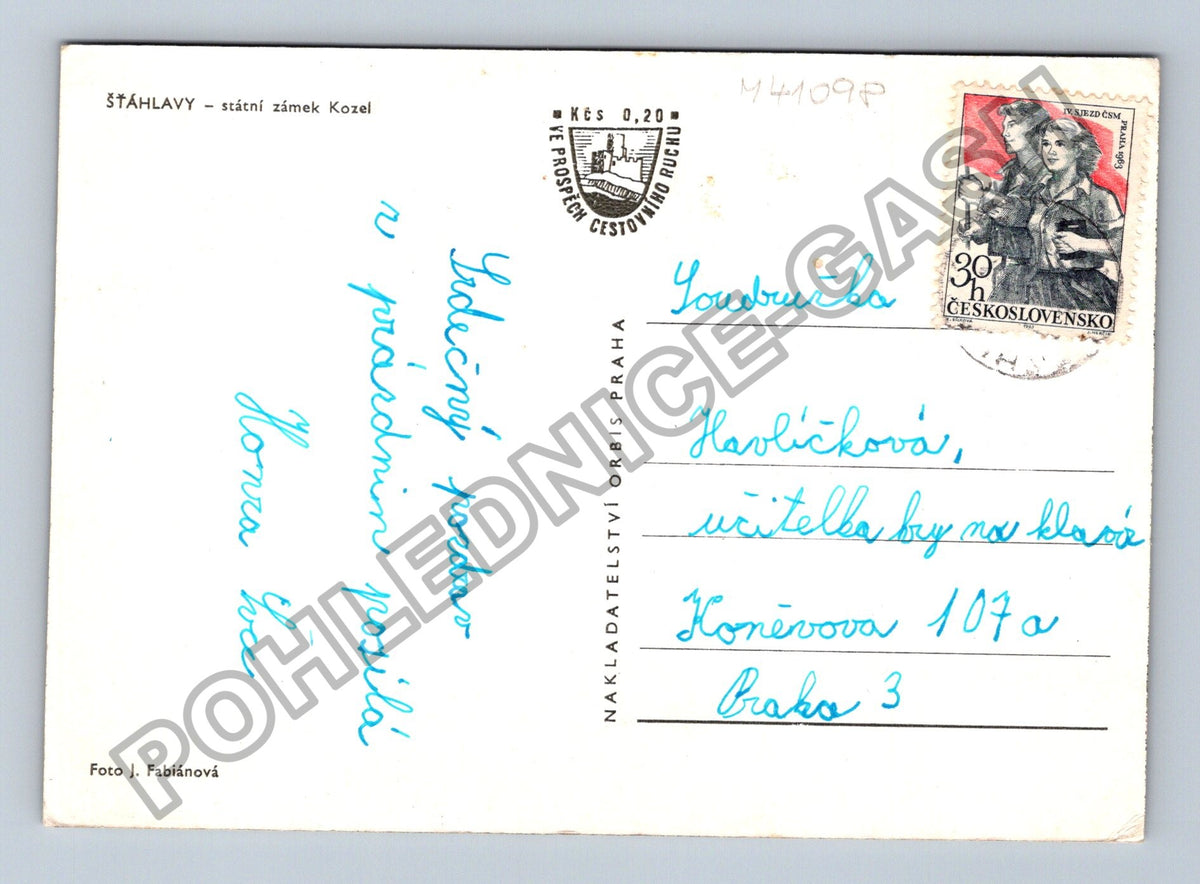 ŠŤÁHLAVY – státní zámek Kozel
M41098
Kčs 0,20
VE PROSPĚCH CESTOVNÍHO RUCHU
IV. SJEZD ČSM
PRAHA 1963
30 h
ČESKOSLOVENSKO
1963
Srdečný pozdrav
z prázdnin posílá
Honza
Soudružka
Havlíčková,
učitelka hry na klavír
Koněvova 107a
Praha 3
NAKLADATELSTVÍ ORBIS PRAHA
Foto J. Fabiánová
POHLEDNICE-GASH